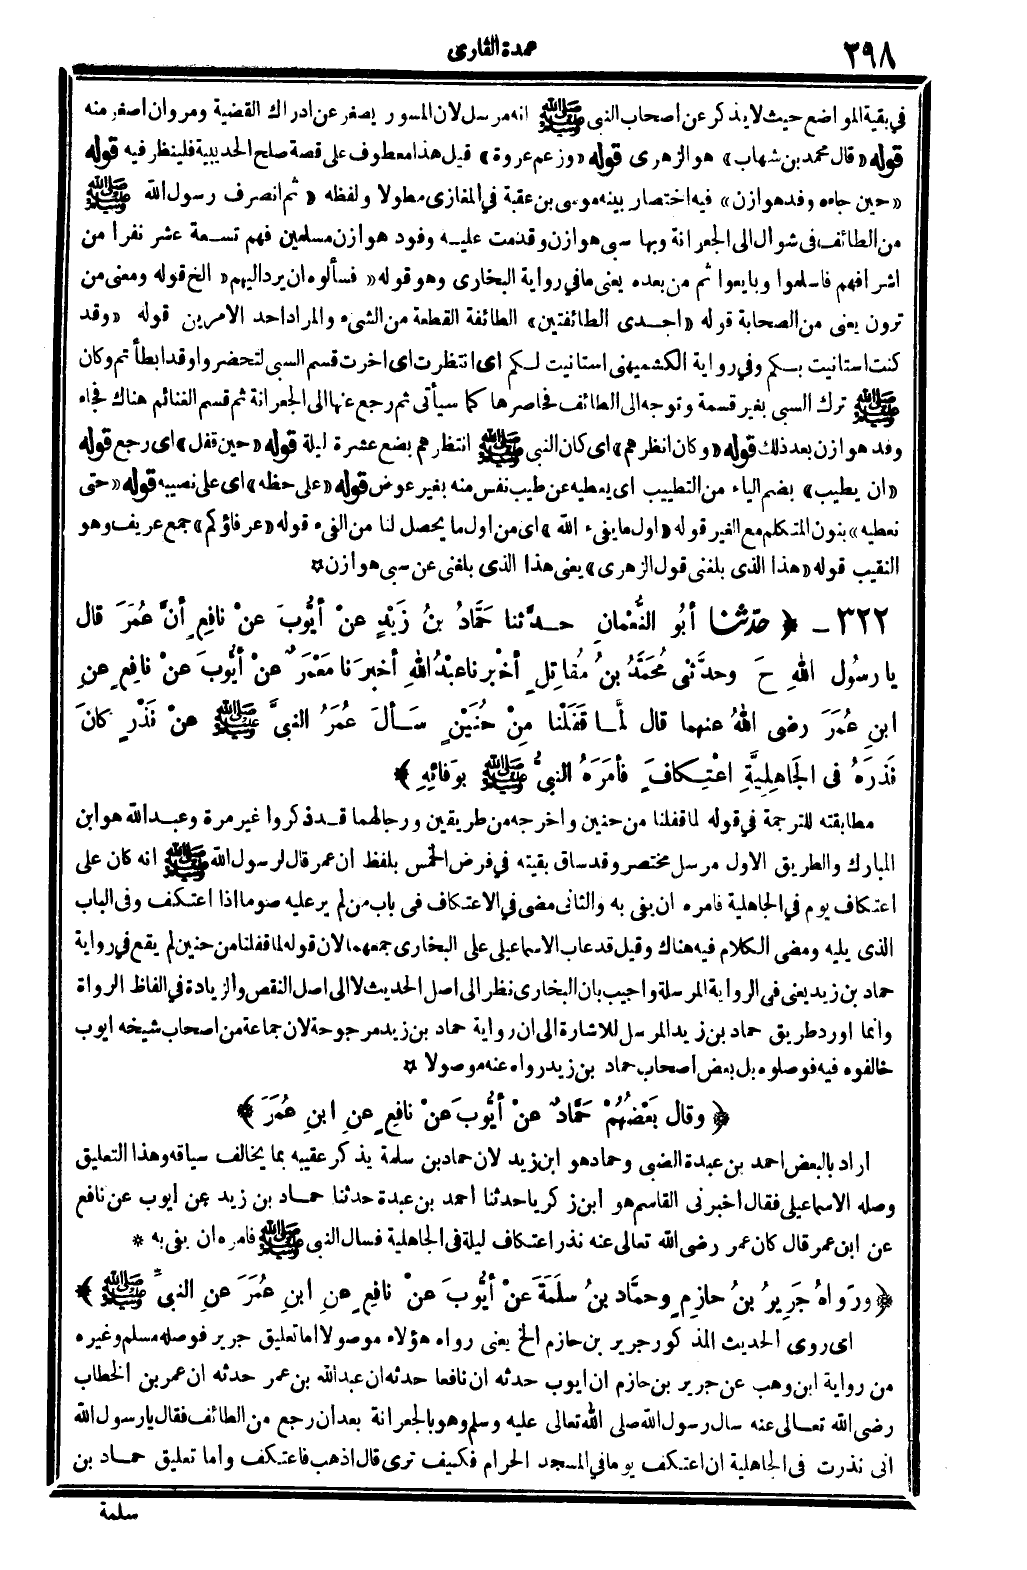 ٢٩٨
عمدة القارى
في بقية المواضع حيث لا يذكر عن أصحاب النبى ﷺ انه مرسل لان المسور يصغر عن ادراك القضية ومروان اصغر منه
قوله «قال محمد بن شهاب» هو الزهرى قوله «وزعم عروة» قيل هذا معطوف على قصة صلح الحديبية فلينظر فيه قوله
«حين جاءه وفد هوازن» فيه اختصار بينه موسى بن عقبة في المغازى مطولا ولفظه «ثم انصرف رسول الله ﷺ
من الطائف فى شوال الى الجعرانة وبها سى هوازن وقدمت عليه وفود هوازن مسلمين فهم تسعة عشر نفرا من
اشرافهم فاسلموا وبايعوا ثم من بعده يعنى ما في رواية البخارى وهو قوله «فسألوه ان يرد اليهم» الخ قوله ومعى من
ترون يعنى من الصحابة قوله «احدى الطائفتين» الطائفة القطعة من الشىء والمراد احد الامرين قوله «وقد
كنت استانيت بكم وفي رواية الكشميهنى استانيت لكم اى انتظرت اى اخرت قسم السبى لتحضروا وقد ابطأتم وكان
ﷺ ترك السبى بغير قسمة وتوجه الى الطائف فحاصرها كما سيأتى ثم رجع عنها الى الجعرانة ثم قسم الغنائم هناك فجاء
وفد هوازن بعد ذلك قوله «وكان انظرهم» اى كان النبى ﷺ انتظرهم بضع عشرة ليلة قوله «حين قفل» اى رجع قوله
«ان يطيب» بضم الياء من التطييب اى يعطيه عن طيب نفس منه بغير عوض قوله «على حظه» اى على نصيبه قوله «حتى
نعطيه» بنون المتكلم مع الغير قوله «اول ما يفىء الله» اى من اول ما يحصل لنا من الفىء قوله «عرفاؤكم» جمع عريف وهو
النقيب قوله «هذا الذى بلغنى قول الزهرى» يعنى هذا الذى بلغنى عن سبى هوازن ✡
٣٢٢ - ﴿ حدثنا أبُو النُّعْمانِ حدَّثنا حَمَّادُ بنُ زَيْدٍ عنْ أيُّوبَ عنْ نافِعٍ أنَّ عُمَرَ قال
يا رسُولَ اللهِ حَ وحدَّثنى مُحَمَّدُ بنُ مُقاتِلٍ أخْبرنا عبْدُ اللهِ أخبرَنا مَعْمَرٌ عنْ أيُّوبَ عَنْ نافِعٍ عنِ
ابنِ عُمَرَ رضى اللهُ عنهما قال لمَّا قَفَلْنا مِنْ حُنَيْنٍ سَألَ عُمَرُ النبىَّ ﷺ عنْ نَذْرٍ كانَ
نَذَرَهُ فى الجَاهِلِيَّةِ اعْتِكافٍ فأمَرَهُ النبىُّ ﷺ بوَفائِهِ ﴾
مطابقته للترجمة في قوله لما قفلنا من حنين واخرجه من طريقين ورجالهما قد ذكروا غير مرة وعبد الله هو ابن
المبارك والطريق الاول مرسل مختصر وقد ساق بقيته في فرض الخمس بلفظ ان عمر قال لرسول الله ﷺ انه كان على
اعتكاف يوم في الجاهلية فامره ان يفى به والثانى مضى في الاعتكاف فى باب من لم ير عليه صوما اذا اعتكف وفى الباب
الذى يليه ومضى الكلام فيه هناك وقيل قد عاب الاسماعيلى على البخارى جمعهما لان قوله لما قفلنا من حنين لم يقع في رواية
حماد بن زيد يعنى فى الرواية المرسلة واجيب بان البخارى نظر الى اصل الحديث لا الى اصل النقص والزيادة في الفاظ الرواة
وانما اورد طريق حماد بن زيد المرسل للاشارة الى ان رواية حماد بن زيد مرجوحة لان جماعة من اصحاب شيخه ايوب
خالفوه فيه فوصلوه بل بعض اصحاب حماد بن زيد رواه عنه موصولا ✡
﴿ وقال بَعْضُهُمْ حَمَّادٌ عنْ أيُّوبَ عَنْ نافِعٍ عنِ ابنِ عُمَرَ ﴾
اراد بالبعض احمد بن عبدة الضبى وحماد هو ابن زيد لان حماد بن سلمة يذكر عقيبه بما يخالف سياقه وهذا التعليق
وصله الاسماعيلى فقال اخبرنى القاسم هو ابن زكريا حدثنا احمد بن عبدة حدثنا حماد بن زيد عن ايوب عن نافع
عن ابن عمر قال كان عمر رضى الله تعالى عنه نذر اعتكاف ليلة فى الجاهلية فسال النبى ﷺ فامره ان يفى به *
﴿ ورَواهُ جَرِيرُ بنُ حازِمٍ وحمَّاد بنُ سلَمَةَ عَنْ أيُّوبَ عَنْ نافِعٍ عنِ ابنِ عُمَرَ عنِ النبىِّ ﷺ ﴾
اى روى الحديث المذكور جرير بن حازم الخ يعنى رواه هؤلاء موصولا اما تعليق جرير فوصله مسلم وغيره
من رواية ابن وهب عن جرير بن حازم ان ايوب حدثه ان نافعا حدثه ان عبدالله بن عمر حدثه ان عمر بن الخطاب
رضى الله تعالى عنه سال رسول الله صلى الله تعالى عليه وسلم وهو بالجعرانة بعد ان رجع من الطائف فقال يا رسول الله
انى نذرت فى الجاهلية ان اعتكف يوما في المسجد الحرام فكيف ترى قال اذهب فاعتكف واما تعليق حماد بن
سلمة